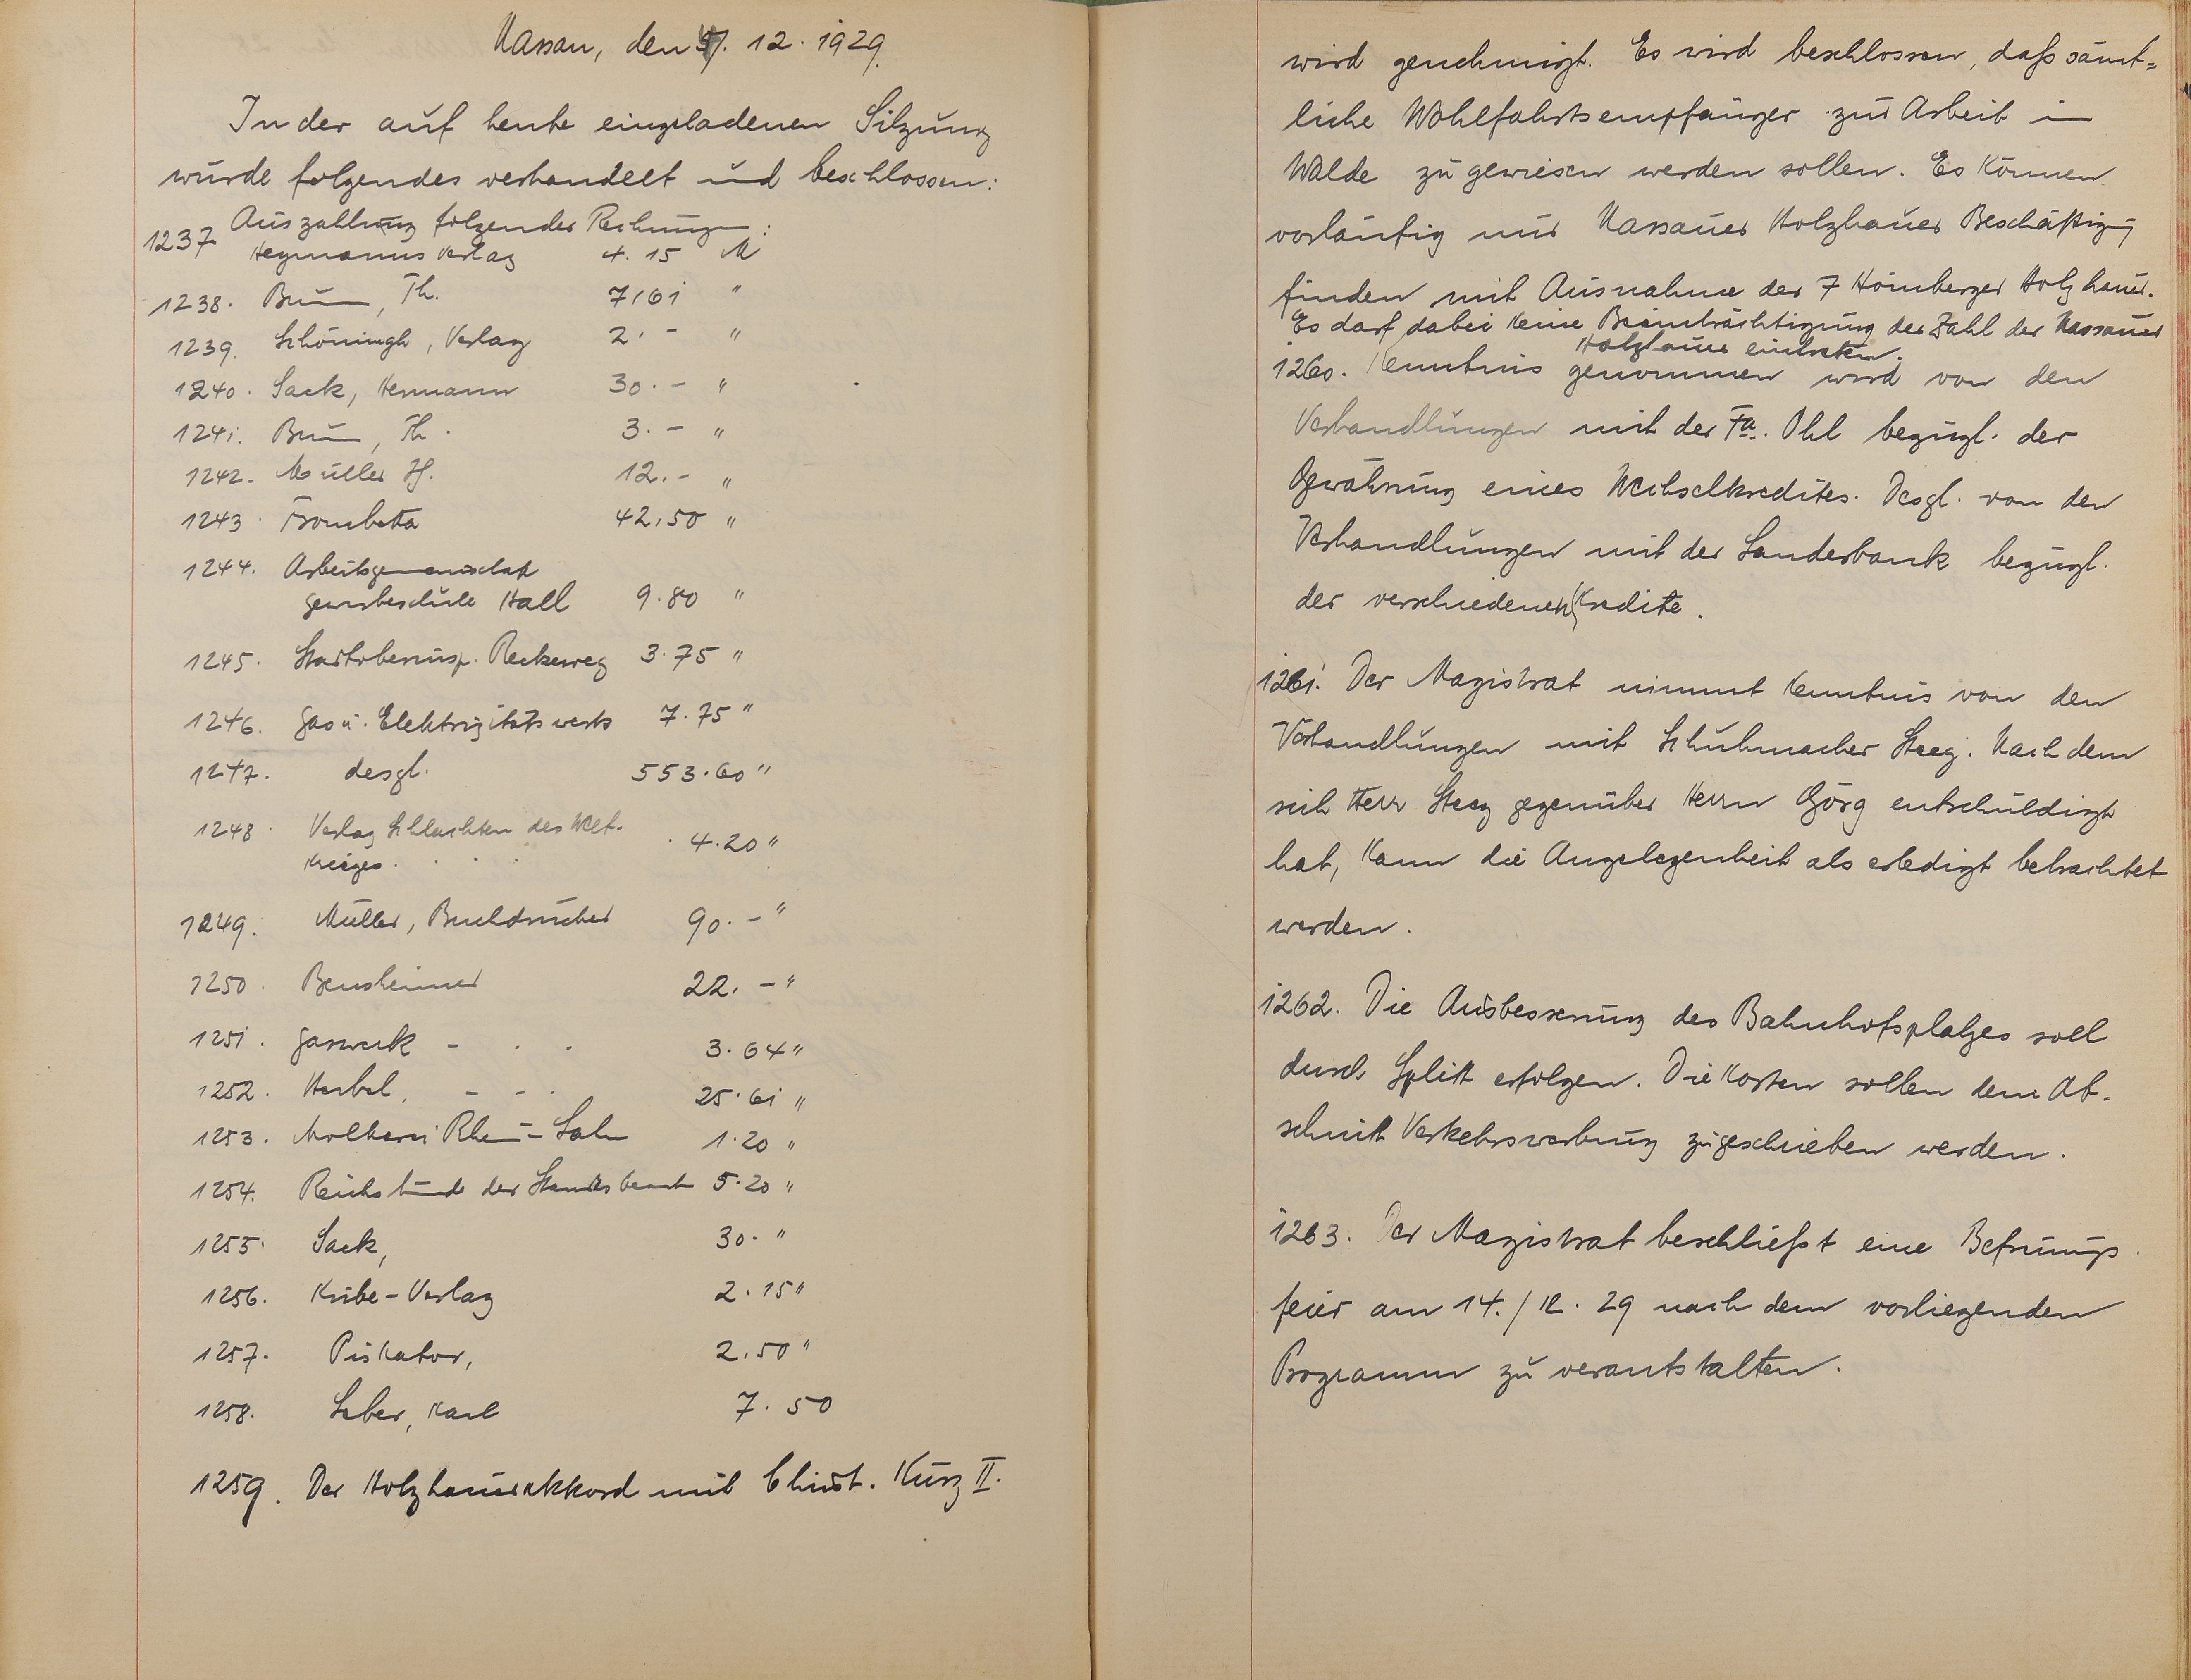 Nassau, den 7. 12. 1929.
In der auf heute eingeladenen Sitzung
wurde folgendes verhandelt und beschlossen:
1237 Auszahlung folgender Rechnungen:
Heymanns Verlag 4.15 M
1238. Brun, Th. 7,61 "
1239. Schöningh, Verlag 2.- "
1240. Sack, Hermann 30.- "
1241. Brun, Th. 3.- "
1242. Müller H. 12.- "
1243. Trombetta 42,50 "
1244. Arbeitsgemeinschaft
Gewerbeschule Hall 9.80 "
1245. Reckeweg 3.75 "
1246. Gas u. Elektrizitätswerk 7.75 "
1247. desgl. 553.60 "
1248. Verlag Schlachten des Welt-
krieges. 4.20 "
1249. Müller, Buchdrucker 90.- "
1250. Bensheimer 22.- "
1251. Gaswerk - 3.64 "
1252. Herbel, - - 25.61 "
1253. Molkerei Rhein-Lahn 1.20 "
1254. Reichsbund der Standesbeamt 5.20 "
1255. Sack, 30. "
1256. Kribe-Verlag 2.15 "
1257. Piskator, 2,50 "
1258. Leber, Karl 7.50
1259. Der Holzhauerakkord mit Christ. Kurz II.
wird genehmigt. Es wird beschlossen, daß sämt=
liche Wohlfahrtsempfänger zur Arbeit im
Walde zugewiesen werden sollen. Es können
vorläufig nur Nassauer Holzhauer Beschäftigung
finden mit Ausnahme der 7 Hömberger Holzhauer.
Es darf dabei keine Beeinträchtigung der Zahl der Nassauer
Holzhauer eintreten.
1260. Kenntnis genommen wird von den
Verhandlungen mit der Fa. Ohl bezügl. der
Gewährung eines Wechselkredites. Desgl. von den
Verhandlungen mit der Landesbank bezügl.
der verschiedenen Kredite.
1261. Der Magistrat nimmt Kenntnis von den
Verhandlungen mit Schuhmacher Steeg. Nachdem
sich Herr Steeg gegenüber Herrn Görg entschuldigt
hat, kann die Angelegenheit als erledigt betrachtet
werden.
1262. Die Ausbesserung des Bahnhofsplatzes soll
durch Splitt erfolgen. Die Kosten sollen dem Ab-
schnitt Verkehrswerbung zugeschrieben werden.
1263. Der Magistrat beschließt eine Befreiungs
feier am 14./12. 29 nach dem vorliegenden
Programm zu verantstalten.